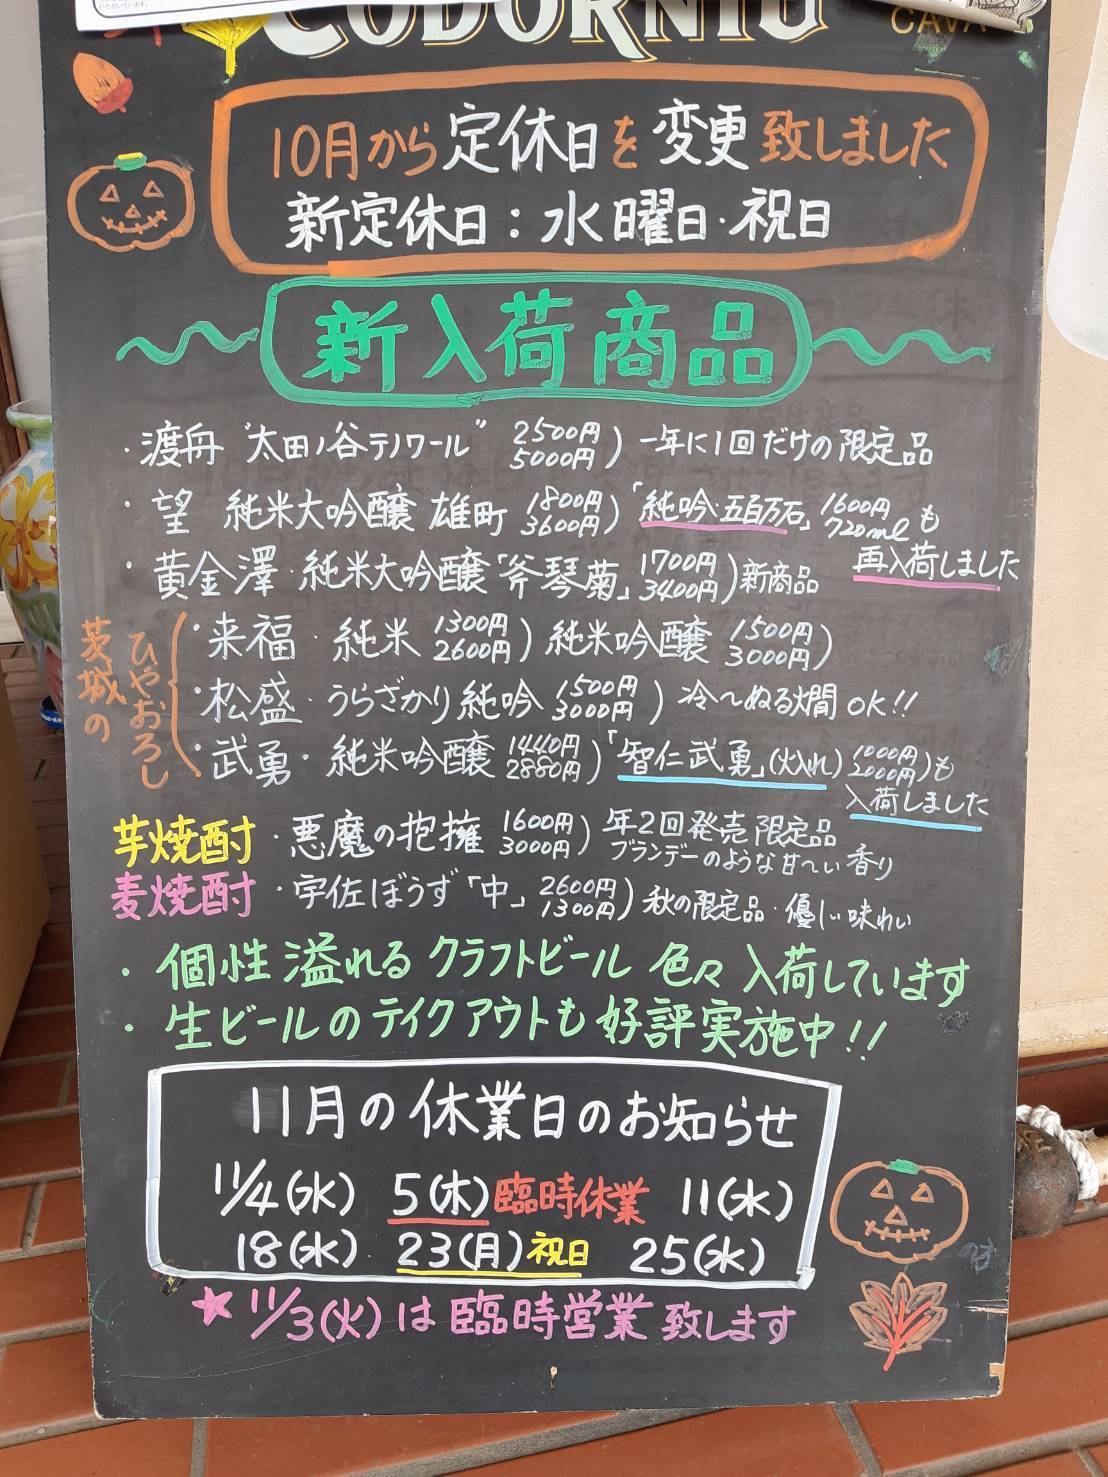 いただいています。
CODORNIU
CAVA
10月から定休日を変更致しました
新定休日：水曜日・祝日
新入荷商品
・渡舟 "太田ノ谷テノワール" 2500円 5000円) 一年に1回だけの限定品
・望 純米大吟醸 雄町 1800円 3600円)「純吟・五百万石」1600円 720ml も
再入荷しました
・黄金澤・純米大吟醸「斧琴菊」1700円 3400円) 新商品
茨城の
ひやおろし
・来福・純米 1300円 2600円) 純米吟醸 1500円 3000円)
・松盛 うらざかり純吟 1500円 3000円) 冷〜ぬる燗OK!!
・武勇・純米吟醸 1440円 2880円)「智仁武勇」(火入れ) 1000円 2000円)も
入荷しました
芋焼酎・悪魔の抱擁 1600円 3000円) 年2回発売 限定品
ブランデーのような甘〜い香り
麦焼酎・宇佐ぼうず「中」2600円 1300円) 秋の限定品・優しい味わい
・個性溢れるクラフトビール 色々入荷しています
・生ビールのテイクアウトも好評実施中!!
11月の休業日のお知らせ
11/4(水) 5(木)臨時休業 11(水)
18(水) 23(月)祝日 25(水)
★11/3(火)は臨時営業致します